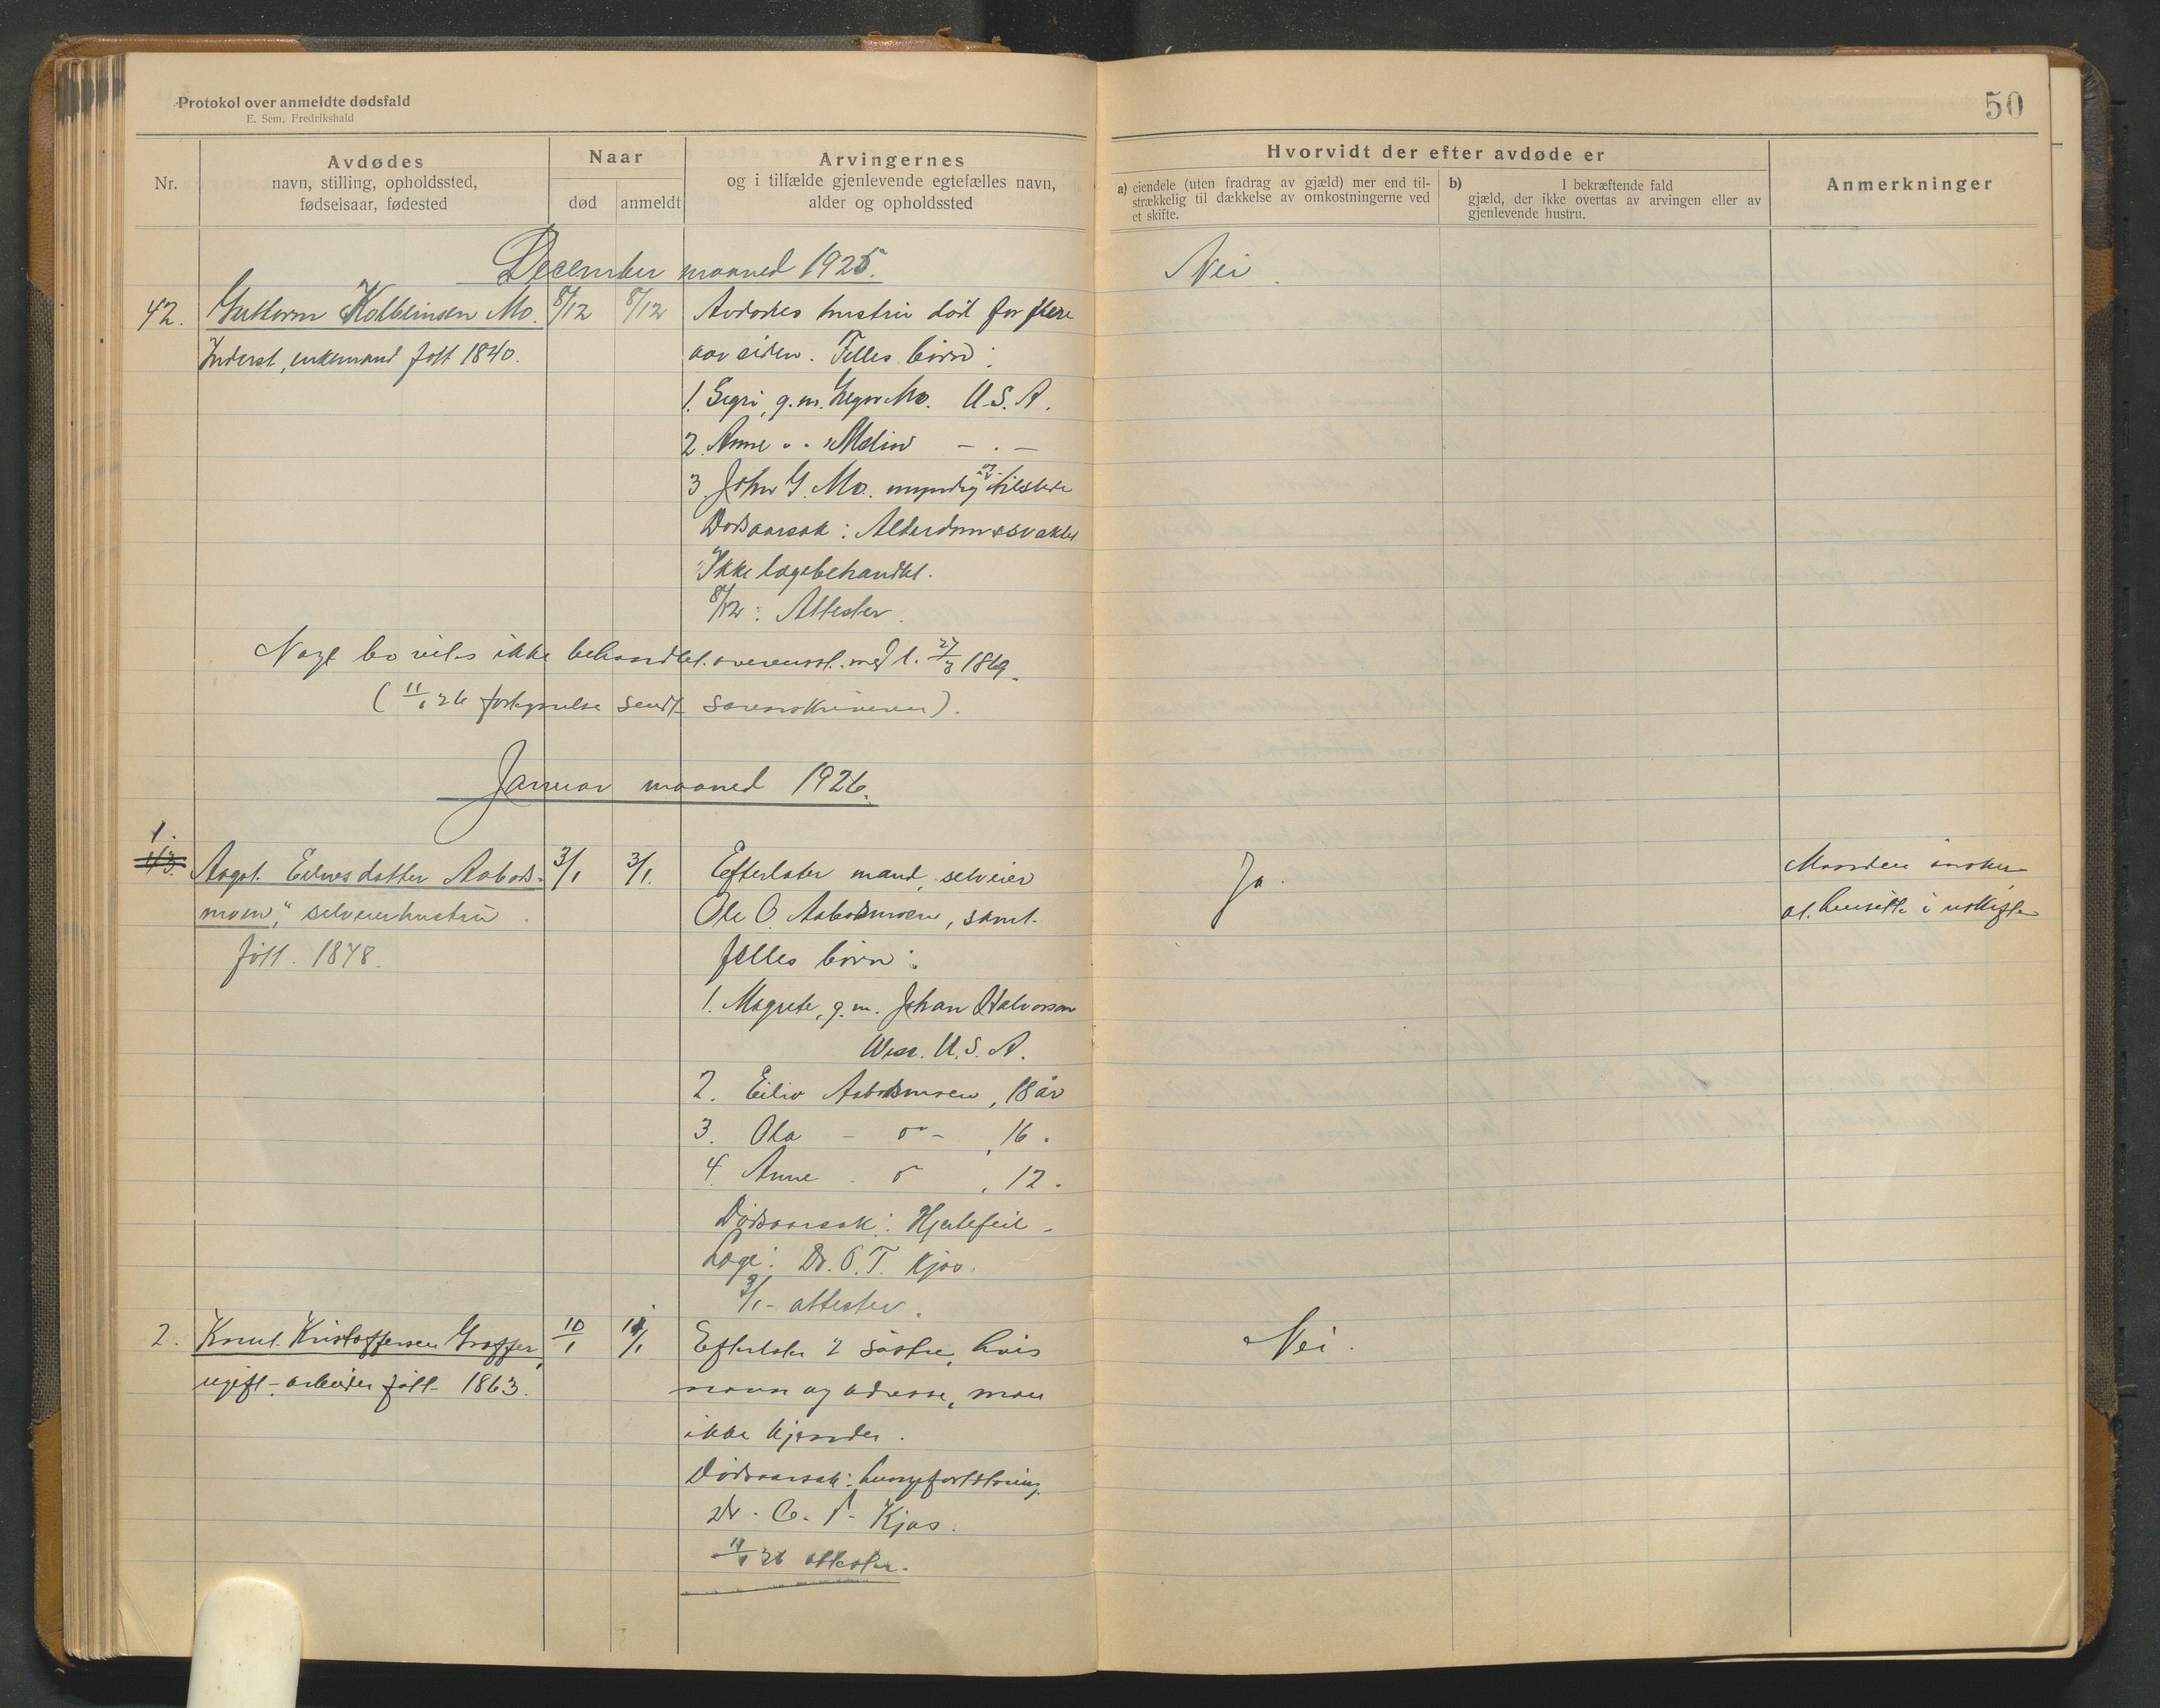 Protokol over anmeldte dødsfald
E. Sem, Fredrikshald
50
Nr.
Avdødes
navn, stilling, opholdssted,
fødselsaar, fødested
Naar
død
anmeldt
Arvingernes
og i tilfælde gjenlevende egtefælles navn,
alder og opholdssted
Hvorvidt der efter avdøde er
a) eiendele (uten fradrag av gjæld) mer end til-
strækkelig til dækkelse av omkostningerne ved
et skifte.
b) I bekræftende fald
gjæld, der ikke overtas av arvingen eller av
gjenlevende hustru.
Anmerkninger
December maaned 1925.
42. Guttorm Kolbeinsen Mo.
Inderst, enkemand født 1840.
8/12 8/12
Avdødes hustru död for flere
aar siden. Felles börn:
1. Sigri, g.m. Mo. U.S.A.
2. Anne " " Melin — . —
3. John G. Mo. myndig og tilstede
Dødsaarsak: Alderdomssvakhet
Ikke lægebehandlet.
8/12: Attester.
Nei
bo viles ikke behandlet overensst. med l. 27/3 1869.
(11/1 26 sendt sorenskriveren).
Januar maaned 1926.
1.
43. Aagot Eilevsdatter Aabods-
moen, selveierhustru
født. 1878.
3/1 3/1.
Efterlater mand, selveier
Ole O. Aabodsmoen, samt
felles börn:
1. Magrete, g.m. Johan Halvorson
Wisc. U.S.A.
2. Eiliv Aabodsmoen, 18 år
3. Ola - o - , 16 "
4. Anne - o , 12 "
Dødsaarsak: Hjertefeil.
Læge: Dr. O. T. Kjos.
3/1 - attester.
Ja.
Manden ønsker
at hensitte i uskifte
2. Knut Kristoffersen Graffer,
ugift arbeider født 1863.
10/1 11/1
Efterlater 2 søstre, hvis
navn og adresse, man
ikke kjender.
Dødsaarsak:
Dr. O. T. Kjos.
11/1 26 attester.
Nei.